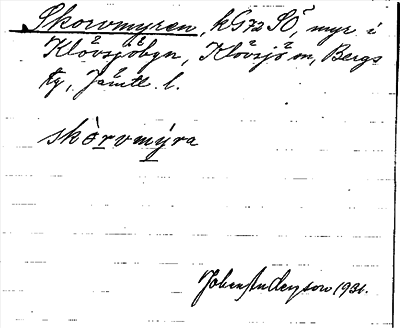 Skorvmyren, kG72SÖ, myr i
Klövsjöbyn, Klövsjö sn, Bergs
tg, Jämtl. l.
skòrvmýra
Johan Anderson 1930.